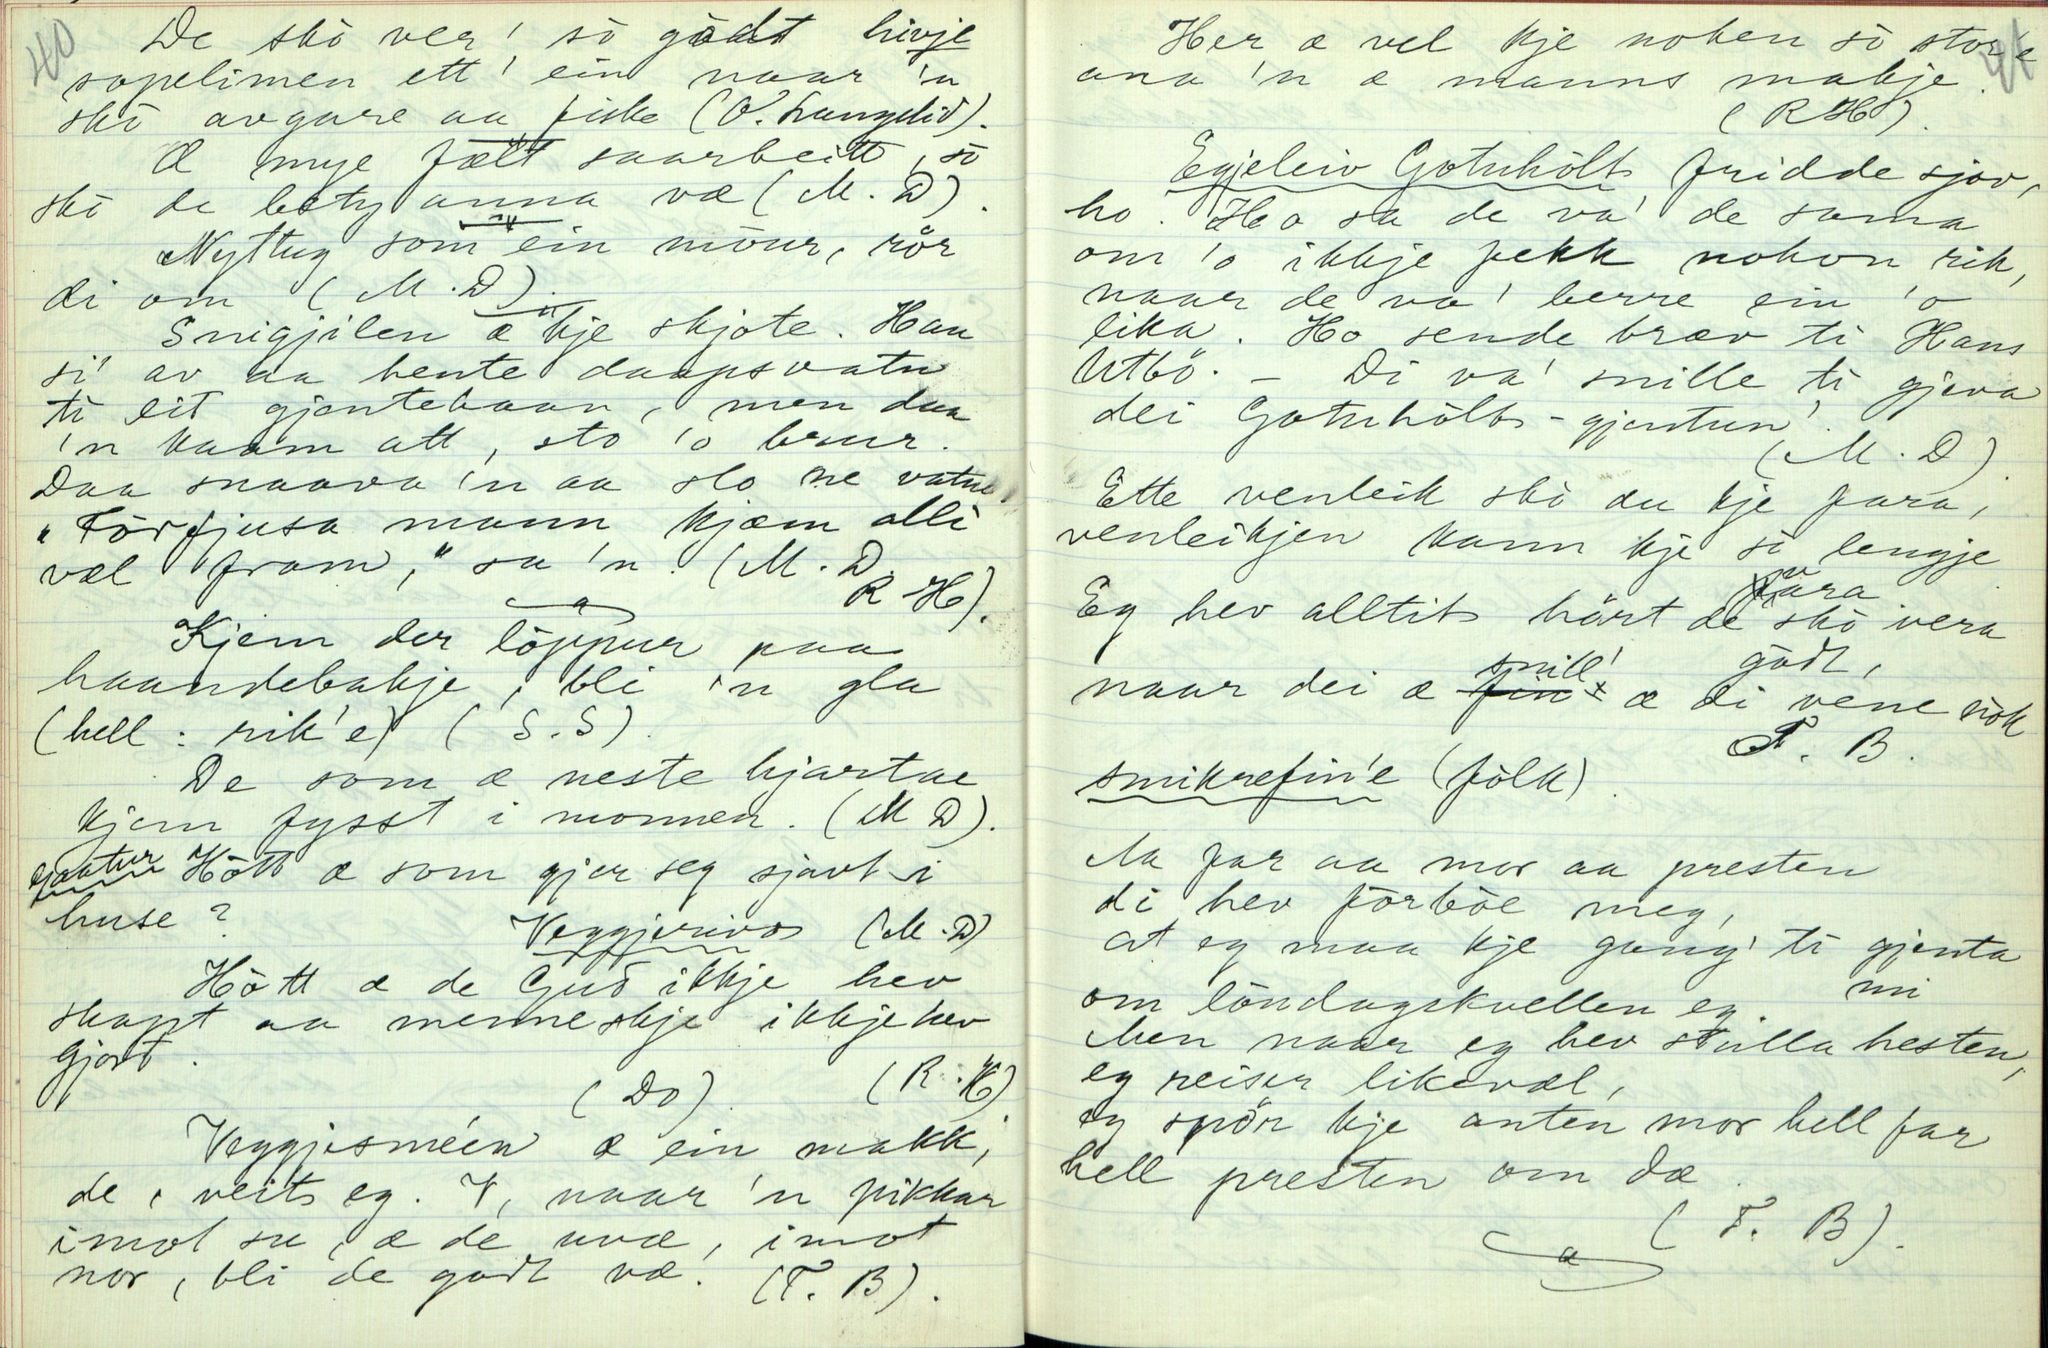 40
De skò ver' sò gòdt hivje
sopelimen ett' ein naar 'n
skò avgare aa fiske (O. Langelid).
Æ mye fælt saarbeitt, sò
skò de bety anna væ (M. D).
Nyttug som ein mòur, rör
di om (M. D).
Snigjilen æ kje skjote. Han
si' av aa hente daapsvatn
ti eit gjentebaan, men daa
'n kaam att, sto 'o brur.
Daa snaava 'n aa slo ne vatne.
"Förfjusa mann kjæm alli
væl fram," sa 'n. (M. D.
R H).
Kjem der löppur paa
haandebakje, bli 'n gla
(hell: rik'e) (S. S).
De som æ neste hjartae
kjem fysst i monnen. (M D).
gaatur Hòtt æ som gjer seg sjavt i
huse? Veggjerivo (M. D)
Hòtt æ de Gud ikkje hev
skapt aa menneskje ikkje hev
gjort.
(Do) (R. H)
Veggjesméen æ ein makk,
de, veit eg. V, naar 'n pikkar
imot su, æ de uvæ, imot
nor, bli de godt væ. (T. B).
41
Her æ vel kje noken sò stor'e
ana 'n æ manns makje.
(R H).
Egjeleiv Gotuhòlt fridde sjov,
ho. Ho sa de va' de sama
om 'o ikkje fekk nokon rik,
naar de va' berre ein 'o
lika. Ho sende bræv ti Hans
Utbö. – Di va' snille ti gjeva
dei Gotuhòlts-gjentun'.
(M. D)
Ette venleik skò du kje fara,
venleikjen kann kje sò lengje
vara
Eg hev alltit hört de skò vera
godt,
naar dei æ snill' æ di vene nòk
T. B.
smikrefin'e (fòlk).
Aa far aa mor aa presten
di hev förböe meg,
at eg maa kje gang' ti gjenta
mi
om löndagskvellen eg.
Men naar eg hev stilla hesten,
eg reiser likevæl,
eg spör kje anten mor hell far
hell presten om dæ.
(T. B).